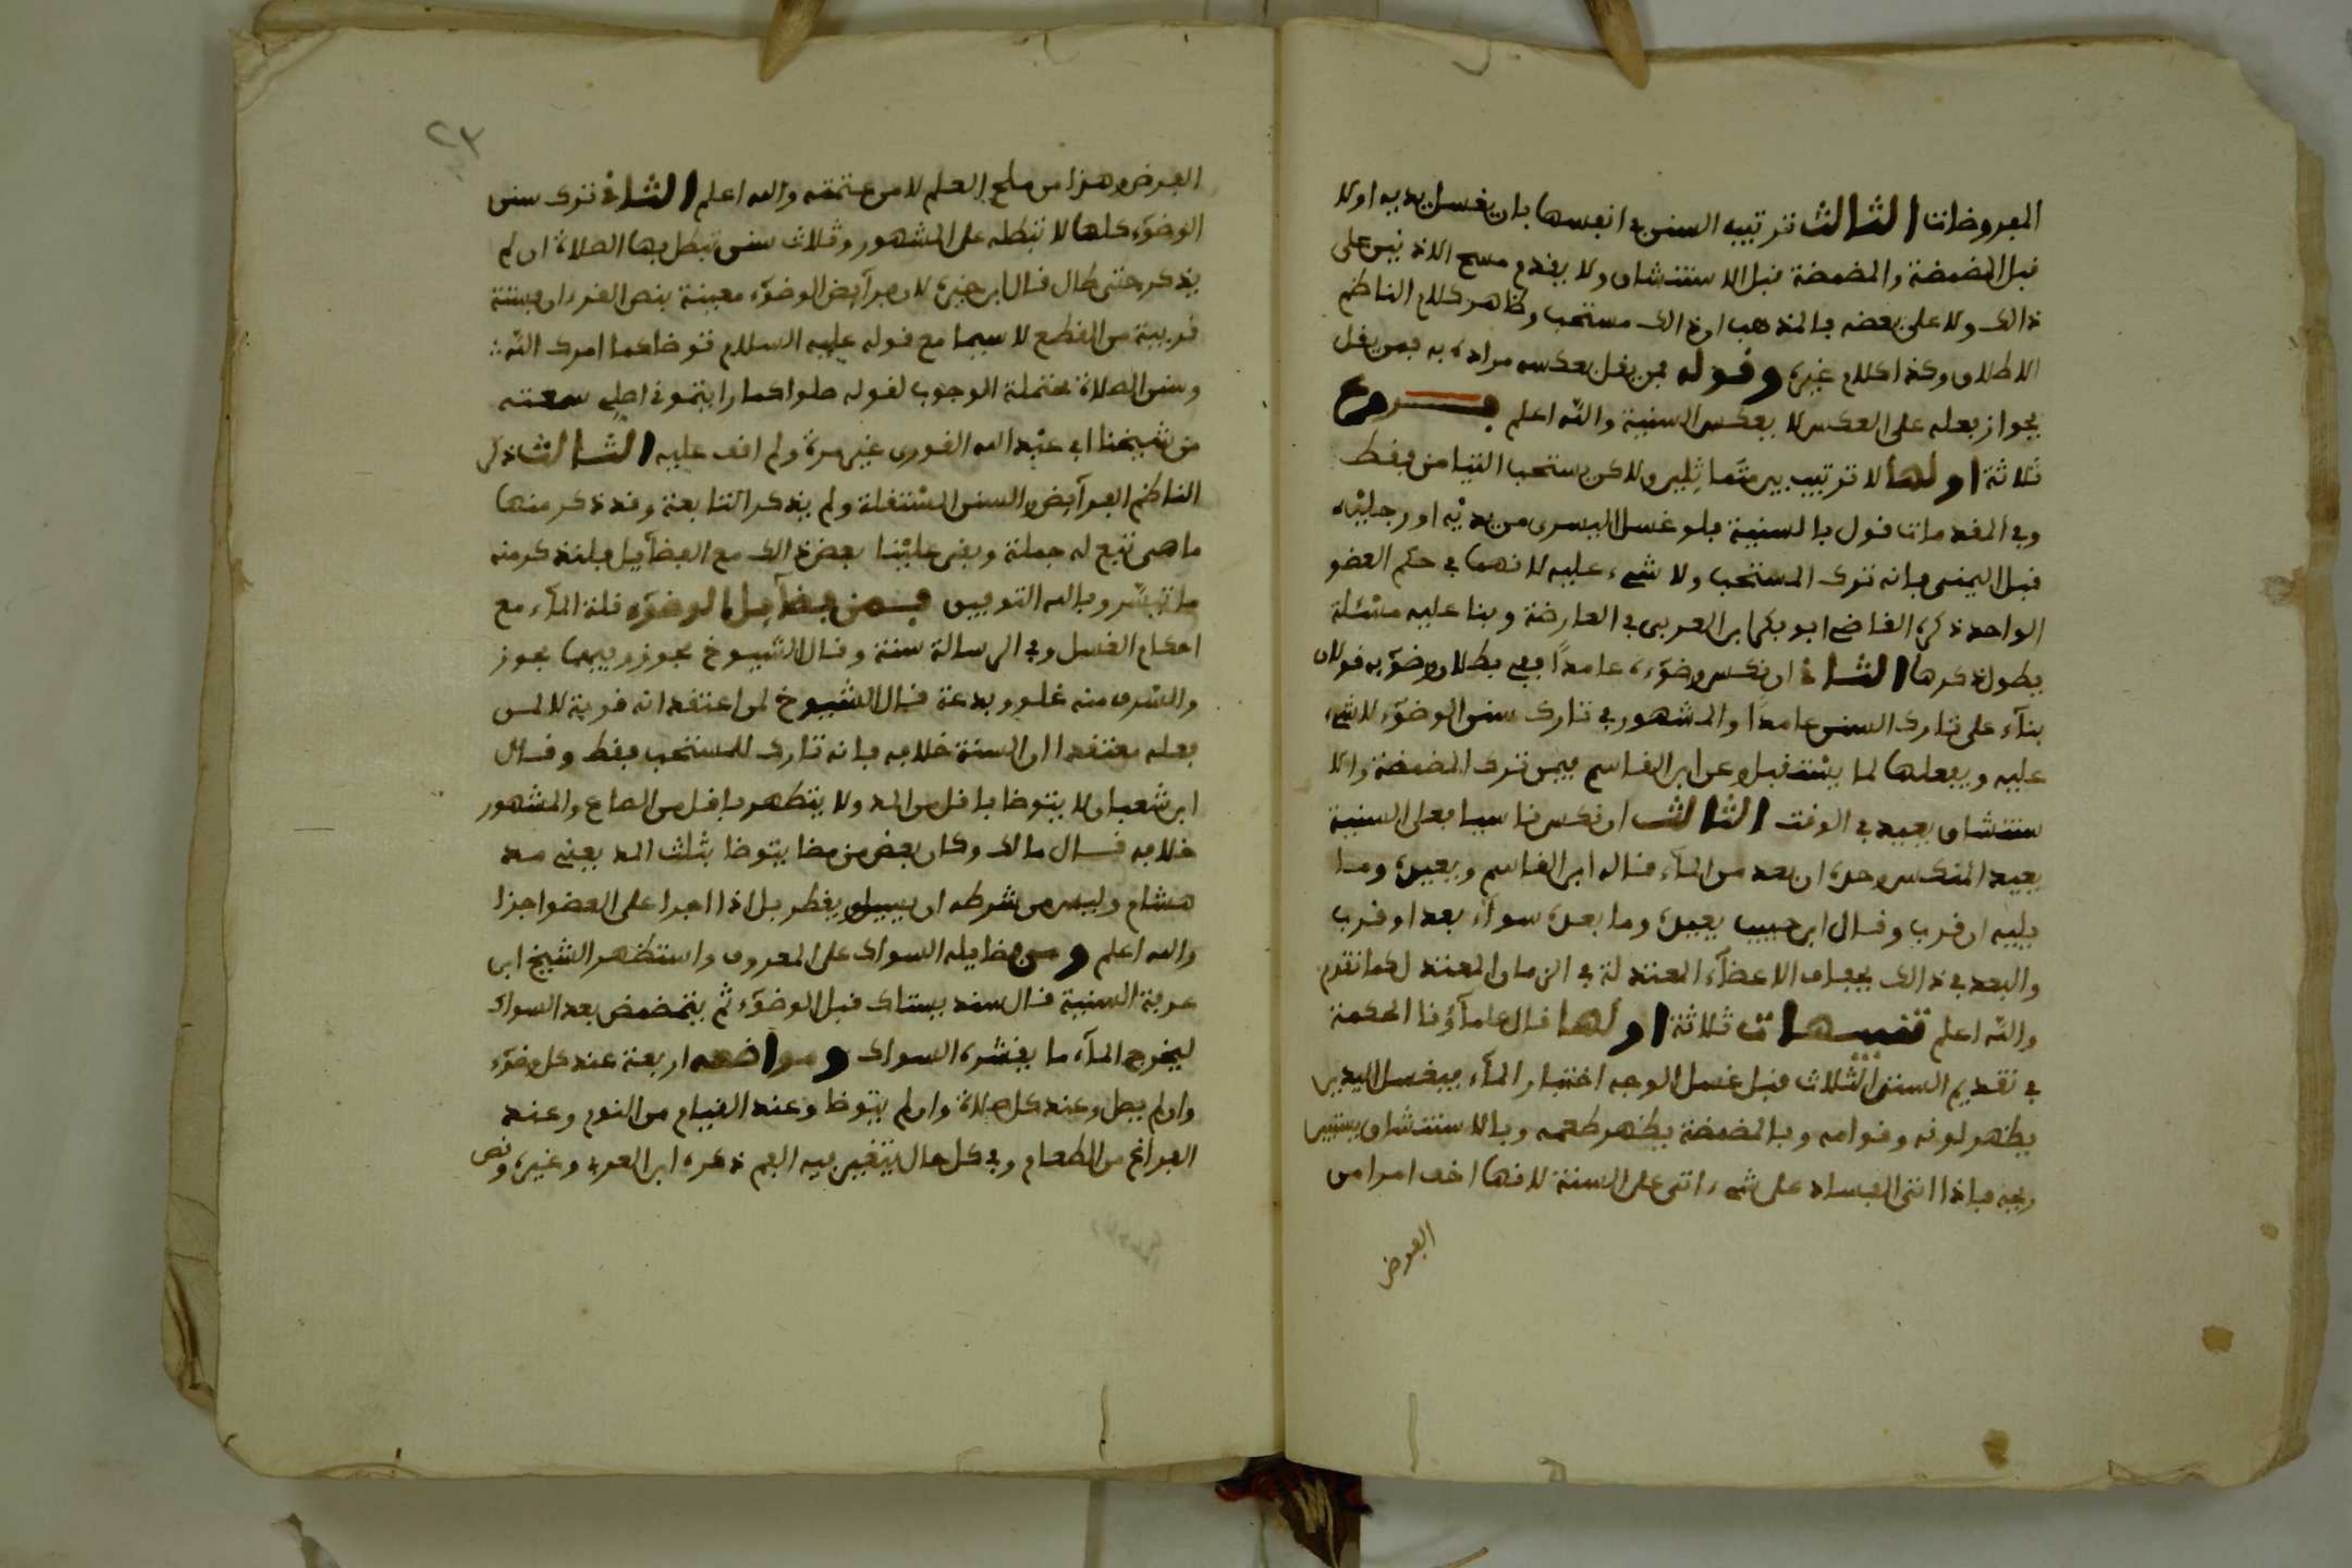 المفروضات الثالث ترتيب السنن في انفسها بان يغسل يديه اولا
قبل المضمضة والمضمضة قبل الاستنشاق ولا يقدم مسح الاذنين على
ذالك ولا على بعضه بالمذهب ان ذالك مستحب وظاهر كلام الناظم
الاطلاق وكذا كلام غيره وقوله فمن يقل بعكسه مراده به فمن يقل
بجواز فعله على العكس لا بعكس السنية والله اعلم فروع
ثلاثة اولها لا ترتيب بين متماثلين ولاكن يستحب التيامن فقط
وفي المقدمات قول بالسنية فلو غسل اليسرى من يديه او رجليه
قبل اليمنى فانه ترك المستحب ولا شيء عليه لانهما في حكم العضو
الواحد ذكره القاضي ابو بكر ابن العربي في العارضة وبنا عليه مسئلة
يطول ذكرها الثاني ان نكس وضوءه عامدا ففي بطلان وضوئه قولان
بناء على تارك السنن عامدا والمشهور في تارك سنن الوضوء لا شيء
عليه ويفعلها لما يستقبل وعن ابن القاسم فيمن ترك المضمضة والا
ستنشاق يعيد في الوقت الثالث ان نكس ناسيا فعلى السنية
يعيد المنكس وحده ان بعد من الماء قاله ابن القاسم ويعيده وما
يليه ان قرب وقال ابن حبيب يعيده وما بعده سواء بعد او قرب
والبعد في ذالك بجفاف الاعضاء المعتدلة في الزمان المعتدل كما تقدم
والله اعلم تنبيهات ثلاثة اولها قال علماؤنا الحكمة
في تقديم السنن الثلاث قبل غسل الوجه اختبار الماء فبغسل اليدين
يظهر لونه وقوامه وبالمضمضة يظهر طعمه وبالاستنشاق يستبين
ريحه فاذا اتى الفساد على شيء اتى على السنة لانها اخف امرا من
الفرض
٢٣
الفرض وهذا من ملح العلم لا من متقنه والله اعلم الثاني ترك سنن
الوضوء كلها لا تبطله على المشهور وثلاث سنن تبطل بها الصلاة ان لم
يذكر حتى طال قال ابن خيرة لان فرآيض الوضوء معينة بنص القرءان فسننه
قريبة من القطع لا سيما مع قوله عليه السلام توضا كما امرك الله
وسنن الصلاة محتملة الوجوب لقوله صلوا كما رايتموني اصلي سمعته
من شيخنا ابي عبد الله القوري غير مرة ولم اقف عليه الثالث ذكر
الناظم الفرآيض والسنن المستقلة ولم يذكر التابعة وقد ذكر منها
ما هي تتبع له جملة وبقي علينا بعض ذالك مع الفضآيل فلنذكر منه
ما تيسر وبالله التوفيق فمن فضآيل الوضوء قلة الماء مع
احكام الغسل وفي الرسالة سنة وقال الشيوخ يجوز وربما يجوز
والسرف منه غلو وبدعة قال الشيوخ لمن اعتقد انه قربة لا لمن
فعله معتقدا ان السنة خلافه فانه تارك للمستحب فقط وقال
ابن شعبان لا يتوضا باقل من المد ولا يتطهر باقل من الصاع والمشهور
خلافه قال مالك وكان بعض من مضا يتوضا بثلث المد يعني مد
هشام وليس من شرطه ان يسيل ويقطر بل اذا اجرا على العضو اجزا
والله اعلم ومن فضايله السواك على المعروف واستظهر الشيخ ابن
عرفة السنية قال سند يستاك قبل الوضوء ثم يتمضمض بعد السواك
ليخرج الماء ما يقشره السواك ومواضعه اربعة عند كل وضوء
وان لم يصل وعند كل صلاة وان لم يتوضا وعند القيام من النوم وعند
الفراغ من الطعام وفي كل حال يتغير فيه الفم ذكره ابن العربي وغيره ونص